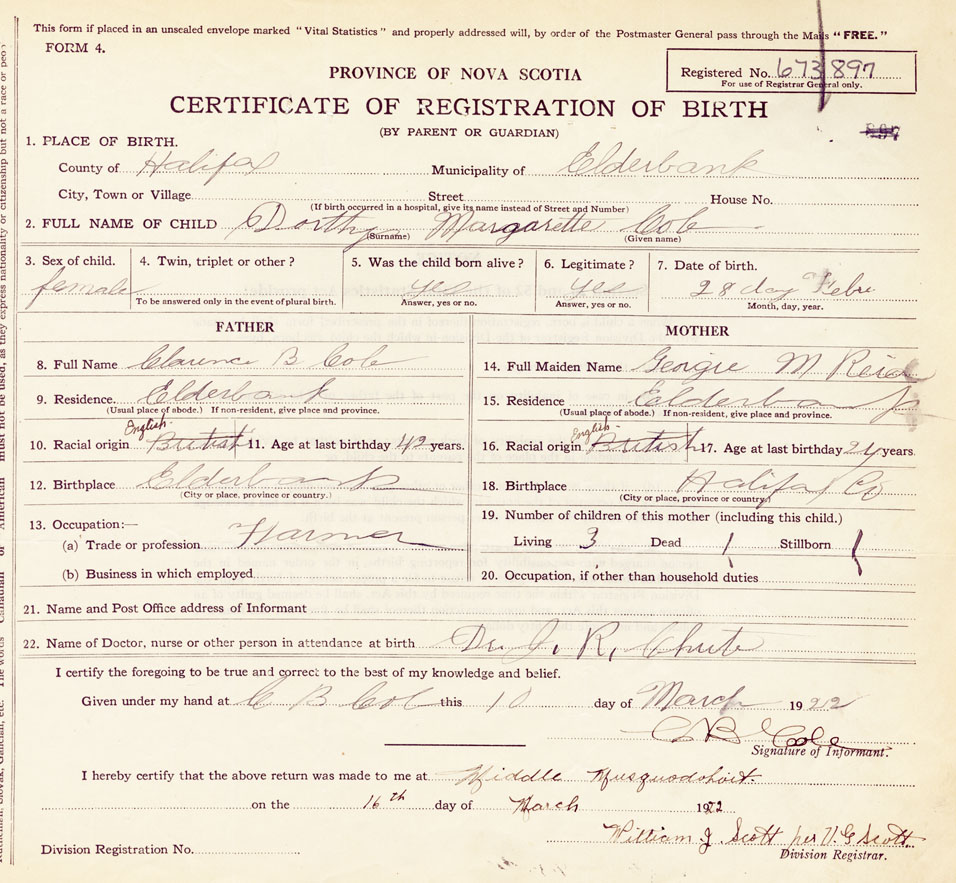 This form if placed in an unsealed envelope marked "Vital Statistics" and properly addressed will, by order of the Postmaster General pass through the Mails "FREE."
FORM 4.
PROVINCE OF NOVA SCOTIA
Registered No. 673897
For use of Registrar General only.
CERTIFICATE OF REGISTRATION OF BIRTH
(BY PARENT OR GUARDIAN)
897
1. PLACE OF BIRTH.
County of Halifax Municipality of Elderbank
City, Town or Village Street House No.
(If birth occurred in a hospital, give its name instead of Street and Number)
2. FULL NAME OF CHILD Dorthy Margarette Cole
(Surname) (Given name)
3. Sex of child. 4. Twin, triplet or other? 5. Was the child born alive? 6. Legitimate? 7. Date of birth.
female yes yes 28 day Febr
To be answered only in the event of plural birth. Answer, yes or no. Answer, yes or no. Month, day, year.
FATHER
8. Full Name Clarence B Cole
9. Residence. Elderbank
(Usual place of abode.) If non-resident, give place and province.
English
10. Racial origin British 11. Age at last birthday 42 years.
12. Birthplace Elderbank
(City or place, province or country.)
13. Occupation:—
(a) Trade or profession Farmer
(b) Business in which employed
MOTHER
14. Full Maiden Name Georgie M Reid
15. Residence Elderbank
(Usual place of abode.) If non-resident, give place and province.
English
16. Racial origin British 17. Age at last birthday 24 years.
18. Birthplace Halifax Co
(City or place, province or country.)
19. Number of children of this mother (including this child.)
Living 3 Dead 1 Stillborn 1
20. Occupation, if other than household duties
21. Name and Post Office address of Informant
22. Name of Doctor, nurse or other person in attendance at birth Dr. J. R. Chute
I certify the foregoing to be true and correct to the best of my knowledge and belief.
Given under my hand at C B Cole this 10 day of March 1922
C B Cole
Signature of Informant.
I hereby certify that the above return was made to me at Middle Musquodoboit.
on the 16th day of March 1922
William J. Scott per U. G Scott.
Division Registration No. Division Registrar.